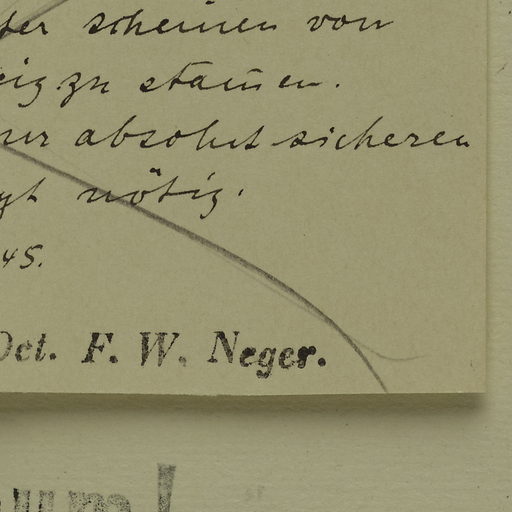 scheinen von
zu stam̄en.
absolut sicheren
nötig.
45.
Det. F. W. Neger.